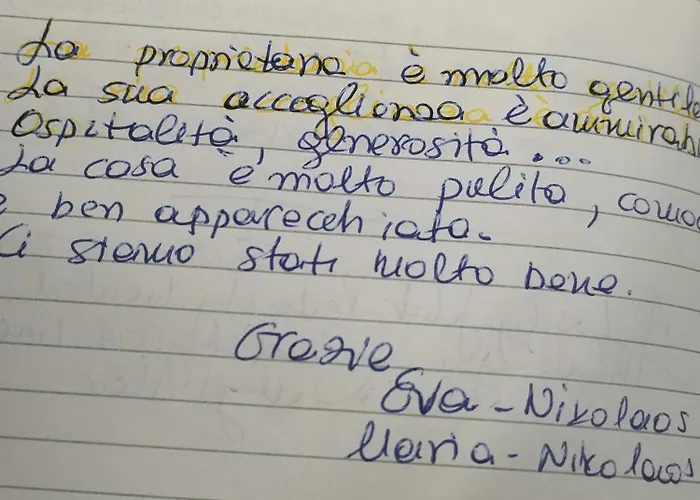 La proprietaria è molto gentile
La sua accoglienza è ammirab
Ospitalità, generosità...
La casa è molto pulita, comoda
e ben apparecchiata.
Ci siamo stati molto bene.
Grazie
Eva - Nikolaos
Maria - Nikolaos